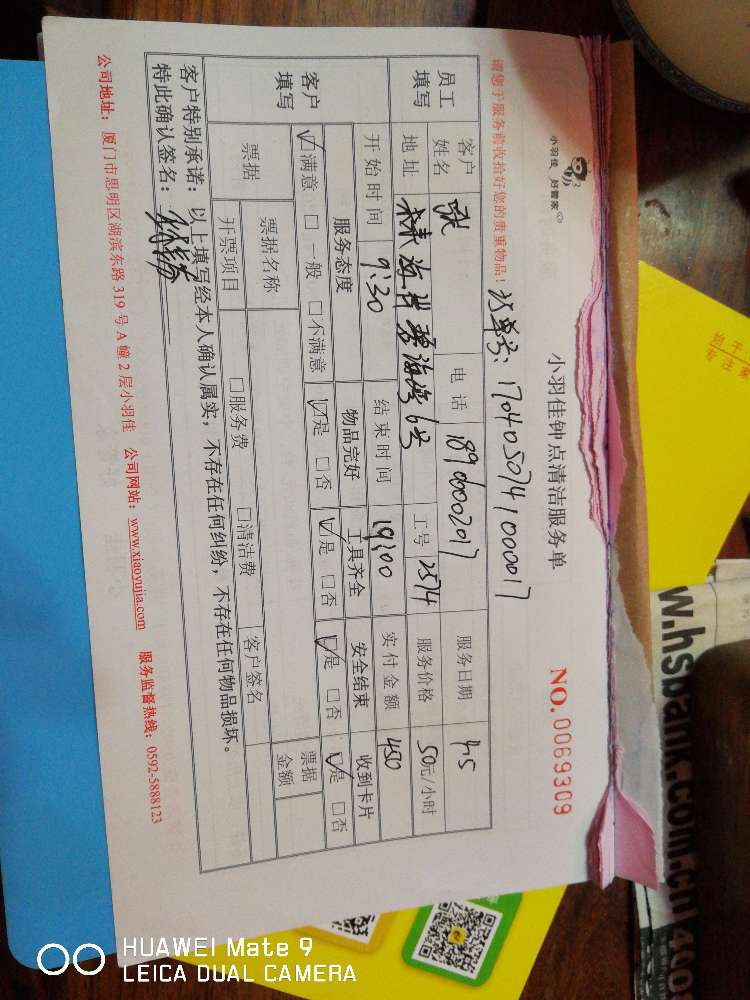 小羽佳 好管家
小羽佳钟点清洁服务单
NO. 0069309
请您于服务前收拾好您的贵重物品！
订单号：1704050741000017
员工填写
客户姓名 张 电话 189000201 服务日期 4.5
地址 海沧 碧海湾6号 工号 2514 服务价格 50元/小时
开始时间 9:30 结束时间 19:00 实付金额 450
客户填写
服务态度 物品完好 工具齐全 安全结束 收到卡片
☑满意 □一般 □不满意 ☑是 □否 ☑是 □否 ☑是 □否 ☑是 □否
票据 票据名称 客户签名 票据金额
开票项目 □服务费 □清洁费
客户特别承诺：以上填写经本人确认属实，不存在任何纠纷，不存在任何物品损坏。
特此确认签名：
公司地址：厦门市思明区湖滨东路 319 号 A 幢 2 层小羽佳 公司网站：www.xiaoyujia.com 服务监督热线：0592-5888123
w.hsbank.com.cn
HUAWEI Mate 9
LEICA DUAL CAMERA